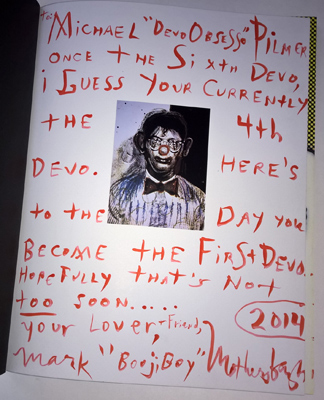 To: MICHAEL "DEVO OBSESSO" PILMER
ONCE THE SIXTH DEVO,
i GUESS YOUR CURRENTLY
THE 4th
DEVO. HERE'S
to the DAY you
BECOME THE FIRST DEVO.
HOPEFULLY THAT'S NOT
too SOON.....
your LOVER + Friend, 2014
MARK "BOOJI BOY" Mothersbaugh